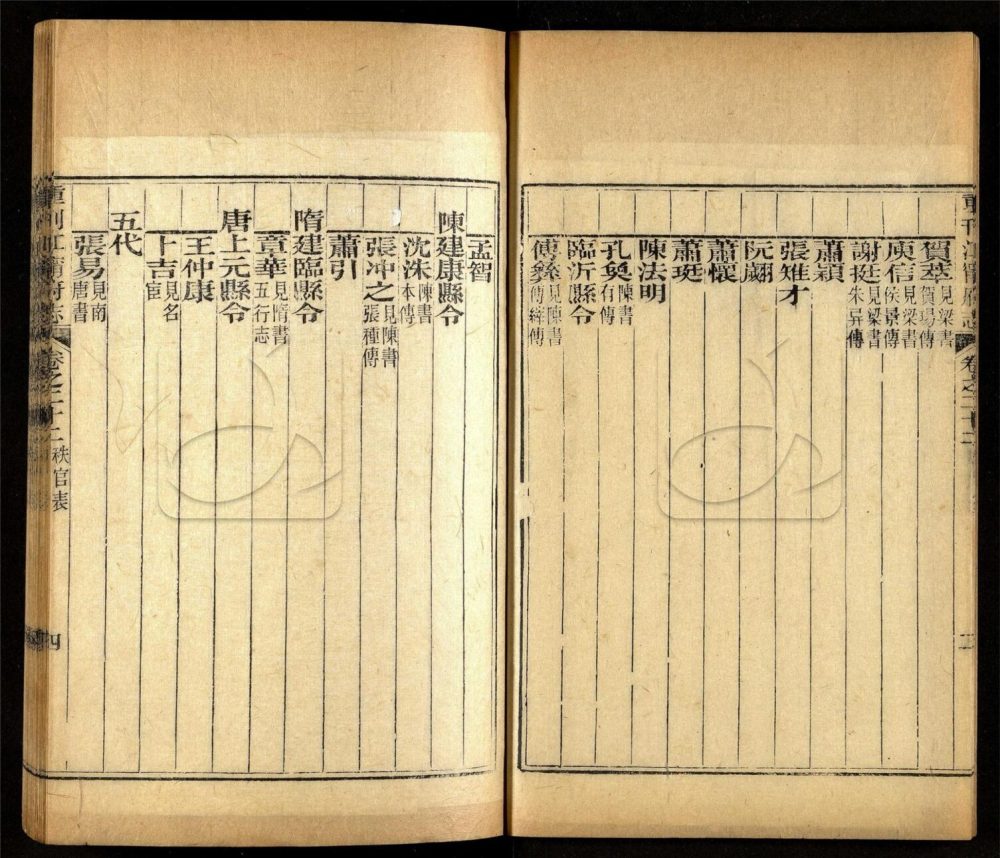 重刊江寧府志 卷之二十二
賀葼見梁書賀瑒傳
庾信見梁書侯景傳
謝挺見梁書朱异傳
蕭穎
張雉才
阮翽
蕭懷
蕭珽
陳法明
孔奐陳書有傳
臨沂縣令
傅縡見陳書傅縡傳
孟智
陳建康縣令
沈洙陳書本傳
張冲之見陳書張種傳
蕭引
隋建臨縣令
章華見隋書五行志
唐上元縣令
王仲康
卜吉見名宦
五代
張易見南唐書
重刊江寧府志 卷之二十二 秩官表 四